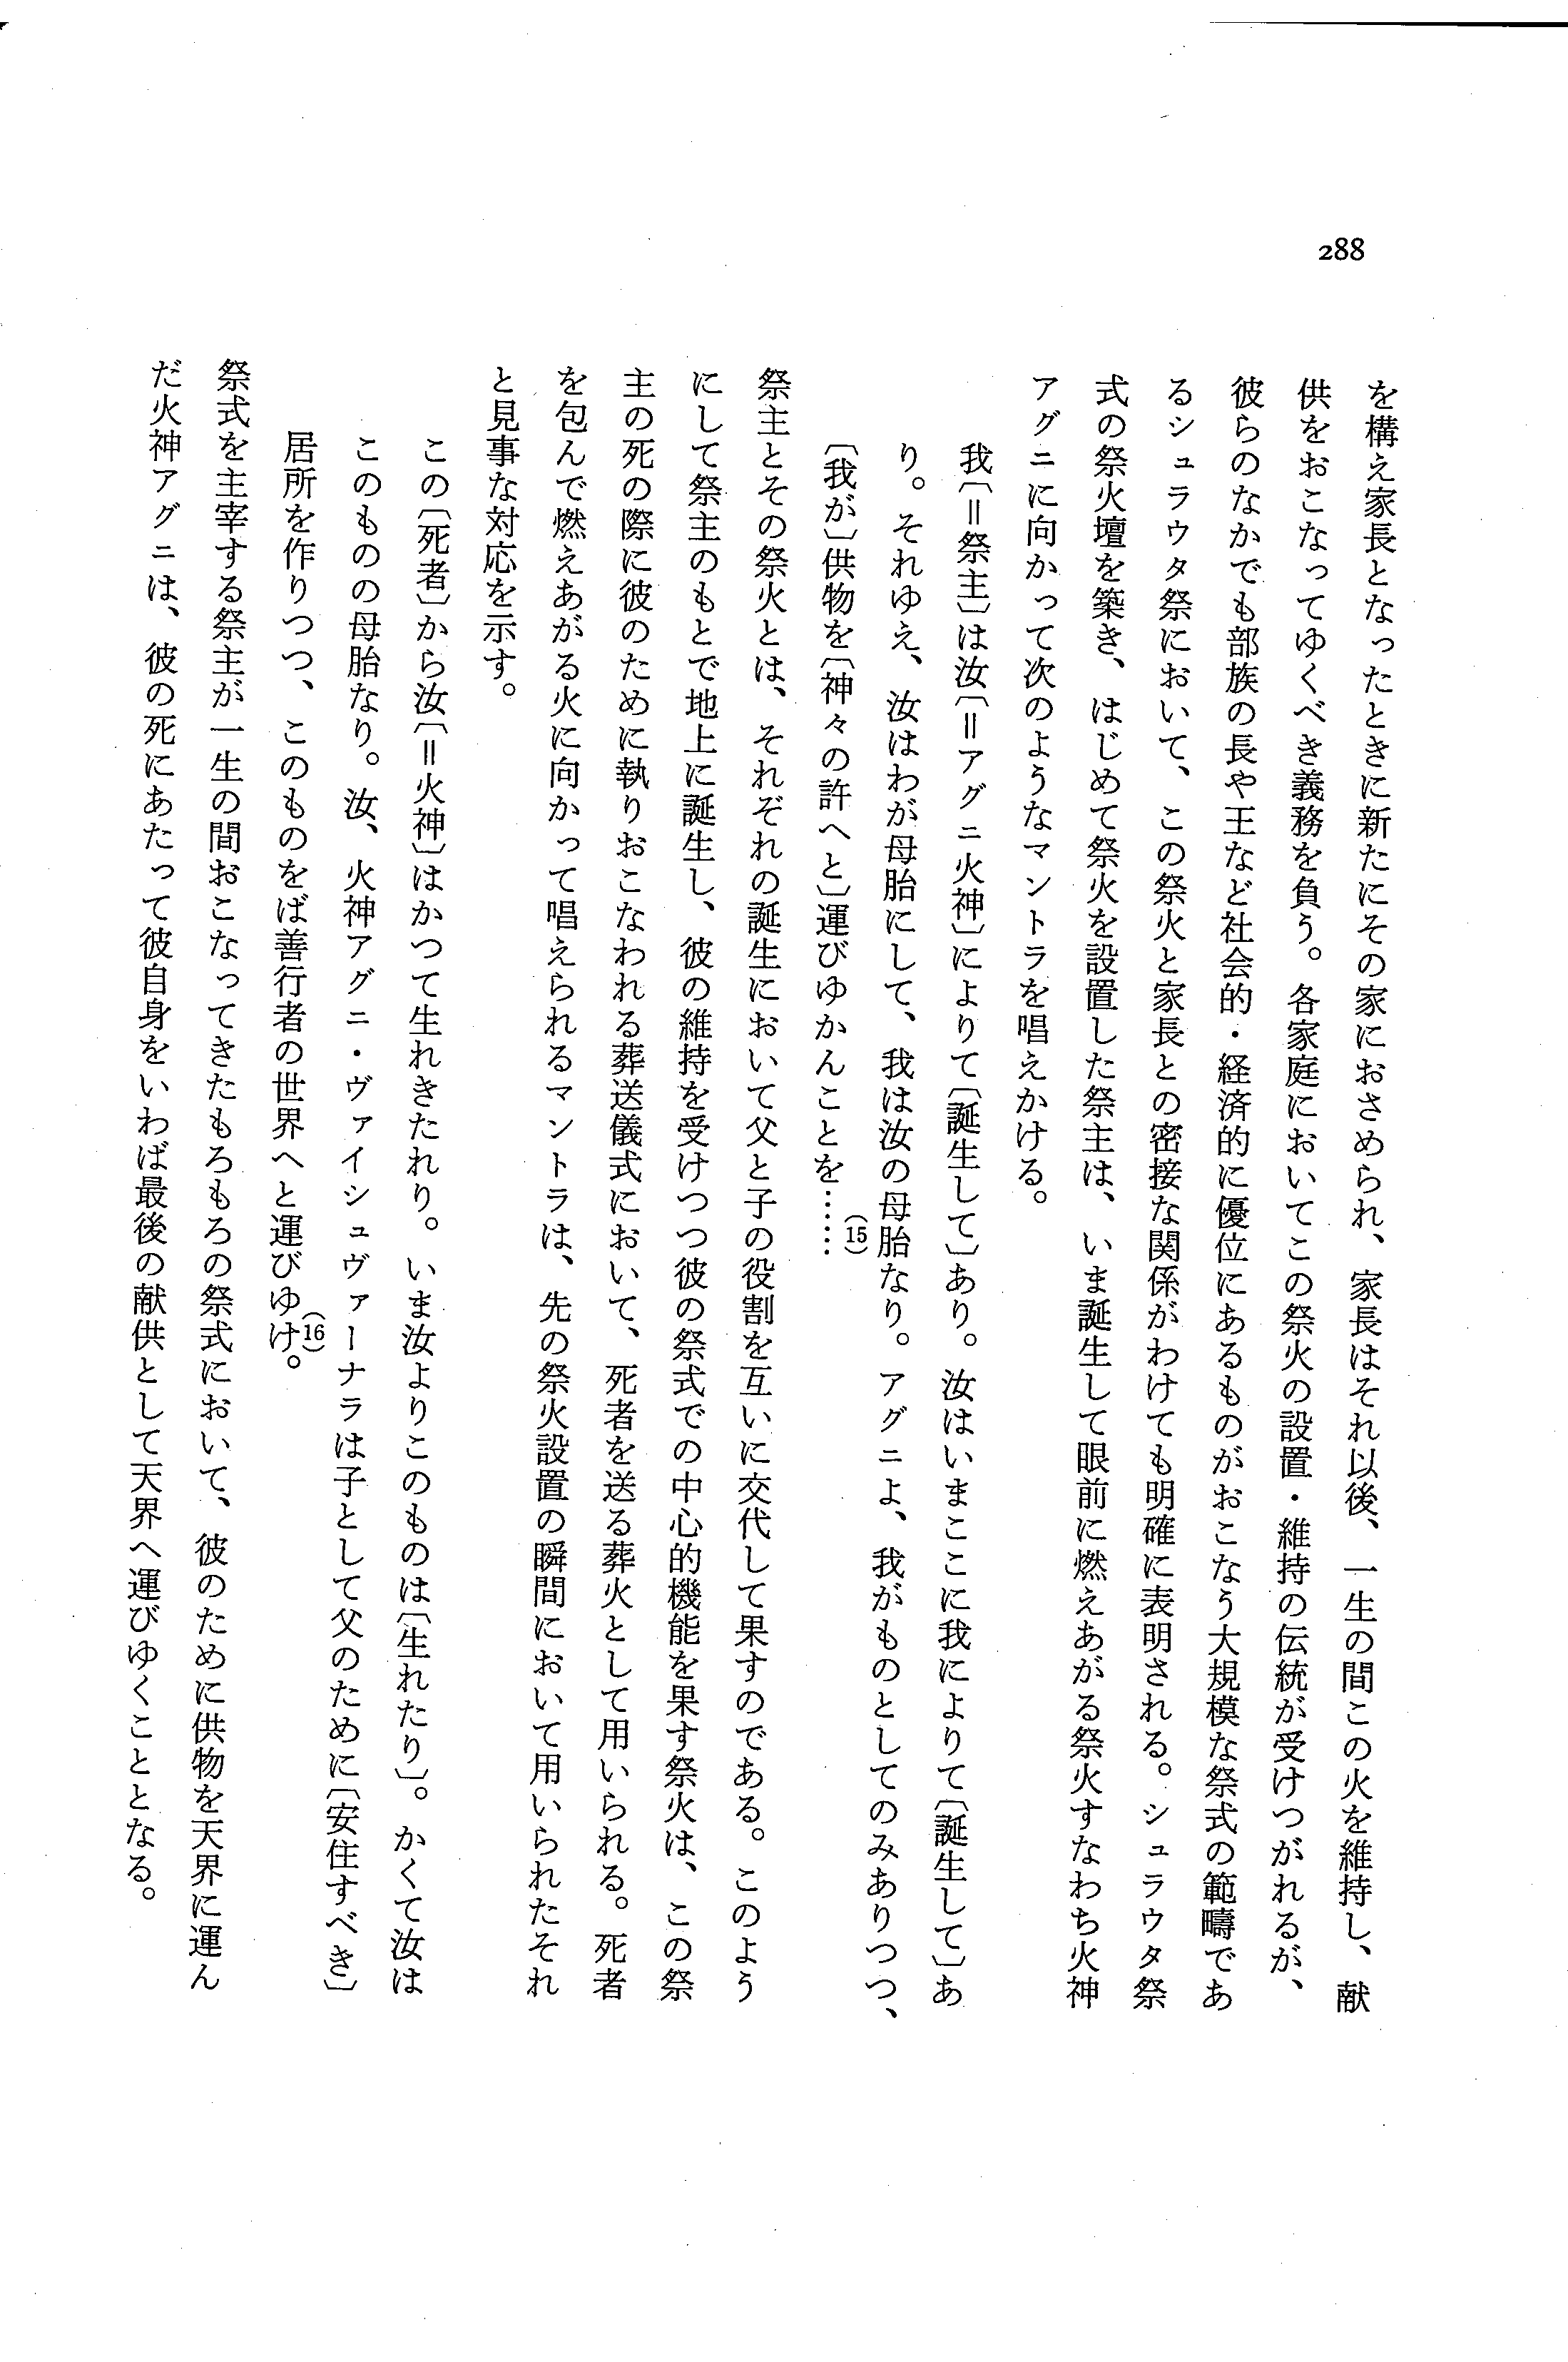 288
を構え家長となったときに新たにその家におさめられ、家長はそれ以後、一生の間この火を維持し、献
供をおこなってゆくべき義務を負う。各家庭においてこの祭火の設置・維持の伝統が受けつがれるが、
彼らのなかでも部族の長や王など社会的・経済的に優位にあるものがおこなう大規模な祭式の範疇であ
るシュラウタ祭において、この祭火と家長との密接な関係がわけても明確に表明される。シュラウタ祭
式の祭火壇を築き、はじめて祭火を設置した祭主は、いま誕生して眼前に燃えあがる祭火すなわち火神
アグニに向かって次のようなマントラを唱えかける。
我〔＝祭主〕は汝〔＝アグニ火神〕によりて〔誕生して〕あり。汝はいまここに我によりて〔誕生して〕あ
り。それゆえ、汝はわが母胎にして、我は汝の母胎なり。アグニよ、我がものとしてのみありつつ、
〔我が〕供物を〔神々の許へと〕運びゆかんことを……(15)
祭主とその祭火とは、それぞれの誕生において父と子の役割を互いに交代して果すのである。このよう
にして祭主のもとで地上に誕生し、彼の維持を受けつつ彼の祭式での中心的機能を果す祭火は、この祭
主の死の際に彼のために執りおこなわれる葬送儀式において、死者を送る葬火として用いられる。死者
を包んで燃えあがる火に向かって唱えられるマントラは、先の祭火設置の瞬間において用いられたそれ
と見事な対応を示す。
この〔死者〕から汝〔＝火神〕はかつて生れきたれり。いま汝よりこのものは〔生れたり〕。かくて汝は
このものの母胎なり。汝、火神アグニ・ヴァイシュヴァーナラは子として父のために〔安住すべき〕
居所を作りつつ、このものをば善行者の世界へと運びゆけ。(16)
祭式を主宰する祭主が一生の間おこなってきたもろもろの祭式において、彼のために供物を天界に運ん
だ火神アグニは、彼の死にあたって彼自身をいわば最後の献供として天界へ運びゆくこととなる。